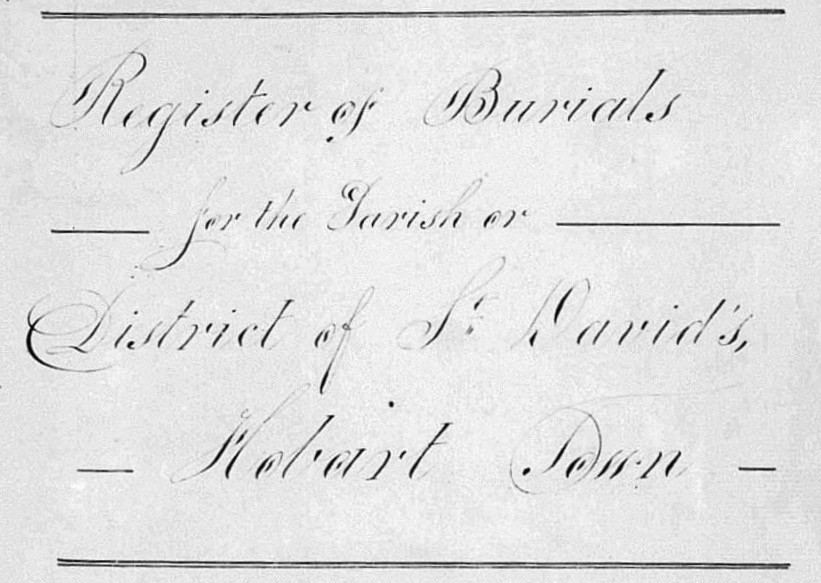 Register of Burials
for the Parish or
District of St. David's,
Hobart Town